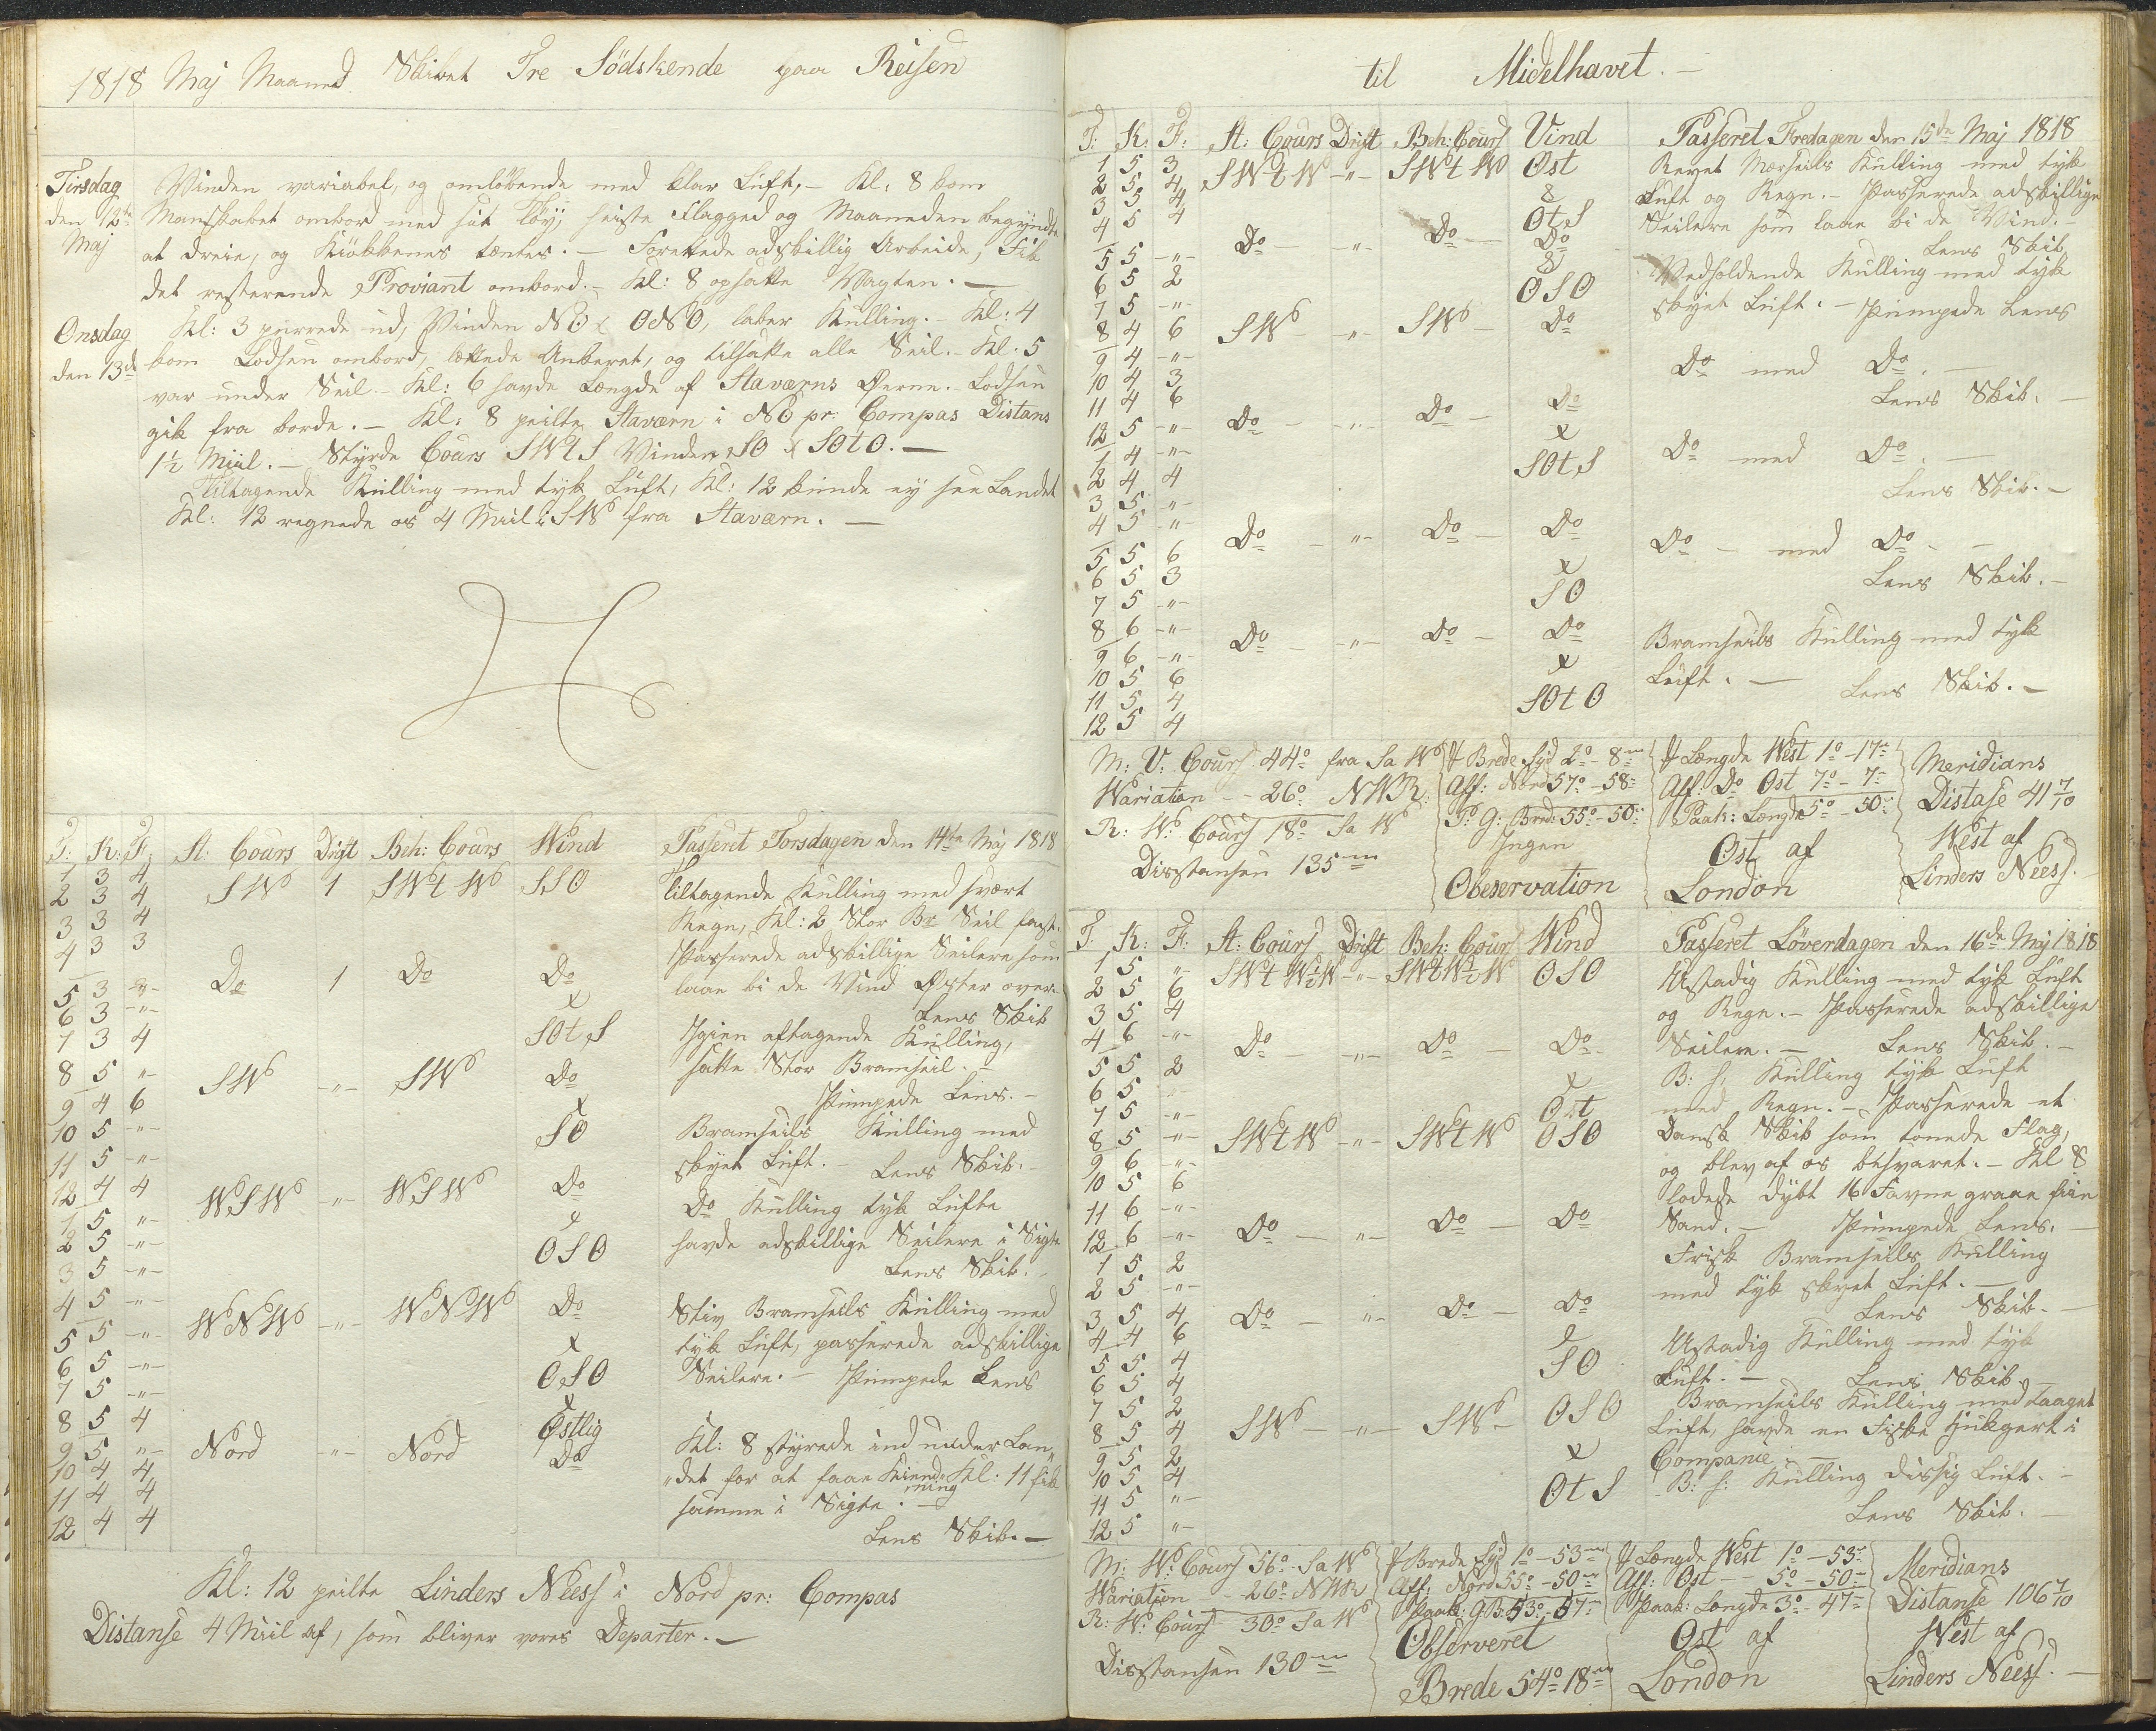 1818 Maj Maaned Skibet Tre Södskende paa Reisen
Tirsdag den 12te Maj
Vinden variabel, og omløbende med klar Luft. - Kl: 8 kom
Manskabet ombord med sit Tøy, heiste Flagged og Maaneden begyndte
at dreie, og Kiökkenes tæntes. - Forettede adskillig Arbeide, Fik
det resterende Proviant ombord. - Kl: 8 opsatte Vagten. -
Onsdag den 13de
Kl: 3 purrede ud, Vinden NO & ONO, laber Kulling. - Kl: 4
kom Lodsen ombord, lettede Ankeret, og tilsatte alle Seil. - Kl: 5
var under Seil - Kl: 6 havde Længde af Staværns Øerne. - Lodsen
gik fra borde. - Kl: 8 peilte Staværn i NO pr: Compas Distans
1½ Miil. - Styrde Cours SWtS Vinden SO & SOtO. -
Tiltagende Kulling med tyk Luft, Kl: 12 kunde ey see Landet
Kl: 12 regnede os 4 Miil i SW fra Staværn. -
T: K: F: St: Cours Drigt Beh: Cours Wind Passeret Torsdagen den 14te Maj 1818
1 3 4 SW 1 SWtW SSO Tiltagende Kulling med svært
2 3 4 Regn, Kl: 2 Stor Br Seil fast.
3 3 4 Passerede adskillige Seilere som
4 3 3 Do 1 Do Do laae bi de Vind Øster over.
5 3 -"- x Lens Skib
6 3 -"- SOtS Igien aftagende Kulling,
7 3 4 satte Stor Bramseil. -
8 5 " SW -"- SW Do Pumpede Lens. -
9 4 6 x
10 5 -"- SO Bramseils Kulling med
11 5 -"- skyet Luft. - Lens Skib. -
12 4 4 WSW -"- WSW Do Do Kulling tyk Lufte
1 5 " x havde adskillige Seilere i Sigte
2 5 -"- OSO Lens Skib. -
3 5 -"-
4 5 -"- WNW -"- WNW Do Stiv Bramseils Kulling med
5 5 -"- x tyk Luft, passerede adskillige
6 5 -"- OSO Seilere. - Pumpede Lens
7 5 -"- x
8 5 4 Østlig Kl: 8 styrede ind under Lan-
9 5 "- Nord -"- Nord Do "det for at faae Kiend-ning Kl: 11 fik
10 4 4 samme i Sigte. -
11 4 4 Lens Skib. -
12 4 4
Kl: 12 peilte Linders Neess i Nord pr: Compas
Distanse 4 Miil af, som bliver vores Departer. -
til Midelhavet. -
T: K: F: St: Cours Drift Beh: Cours Vind Passeret Fredagen den 15de Maj 1818
1 5 3 SWtW -"- SWtW Øst Revet Mærseils Kulling med tyk
2 5 4 & Luft og Regn. - Passerede adskillige
3 5 4 OtS Seilere som laae bi de Vind. -
4 5 4 Do -"- Do Do Lens Skib
5 5 -"- & Vedholdende Kulling med tyk
6 5 2 OSO skyet Luft. - Pumpede Lens
7 5 -"-
8 4 6 SW - " SW - Do Do med Do. -
9 4 -"- Lens Skib. -
10 4 3
11 4 6
12 5 -"- Do - -"- Do - Do Do med Do. -
1 4 -"- x Lens Skib. -
2 4 4 SOtS
3 5 "-
4 5 -"- Do - " - Do - Do Do - med Do - -
5 5 6 x Lens Skib. -
6 5 3 SO
7 5 -"-
8 6 -"- Do - -"- Do - Do Bramseils Kulling med tyk
9 6 -"- x Luft. -
10 5 6 SOtO Lens Skib. -
11 5 4
12 5 4
M: V: Cours 44° fra S a W
Wariation - - 26° NWR:
R: W: Cours 18° S a W
Disstansen 135 m
Brede Syd 2° - 8 m
Aff: Nord 57° - 58
P: G: Bred: 55° - 50
Ingen
Obeservation
Længde West 1° - 17
Aff: Do Ost 7° - 7
Paak: Længde 5° - 50
Ost af
London
Meridians
Distase 41 7/10
West af
Linders Neess.
T. K: F: St: Cours Drift Beh: Cours Wind Passeret Löverdagen den 16de Maj 1818
1 5 "- SWtW½W -"- SWtW½W OSO Ustadig Kulling med tyk Luft
2 5 6 og Regn. - Passerede adskillige
3 5 4 Seilere. - Lens Skib. -
4 6 -"- Do - -"- Do - Do B: S: Kulling tyk Luft
5 5 2 x med Regn. - Passerede et
6 5 Ost Dansk Skib som tonede Flag,
7 5 -"- og blev af os besvaret. - Kl 8
8 5 -"- SWtW -"- SWtW OSO lodede dybt 16 Favne graae fiin
9 6 -"- Sand. - Pumpede Lens. -
10 5 6
11 6 -"-
12 6 -"- Do - -"- Do - Do Frisk Bramseils Kulling
1 5 2 med tyk skyet Luft. -
2 5 -"- Lens Skib. -
3 5 4 Do - "- Do - Do Ustadig Kulling med tyk
4 4 6 Luft. - Lens Skib. -
5 5 4 SO
6 5 4
7 5 2 Bramseils Kulling med taaget
8 5 4 SW - -"- SW - OSO Luft, havde en Fiske Hukgert i
9 5 2 x Companie. -
10 5 4 OtS B: S: Kulling dissig Luft. -
11 5 "- Lens Skib. -
12 5 "-
M: W: Cours 56° S a W
Wariation - 26° NWR
R: W: Cours 30° S a W
Disstansen 130 m
Brede Syd 1° - 53 m
Aff: Nord 55° - 50 m
Paak: G: B: 53° - 57 m
Observeret
Brede 54° 18 m
Længde West 1° - 53
Aff: Ost - - 5° - 50
Paak: Længde 3° - 47
Ost af
London
Meridians
Distanse 106 7/10
West af
Linders Neess. -